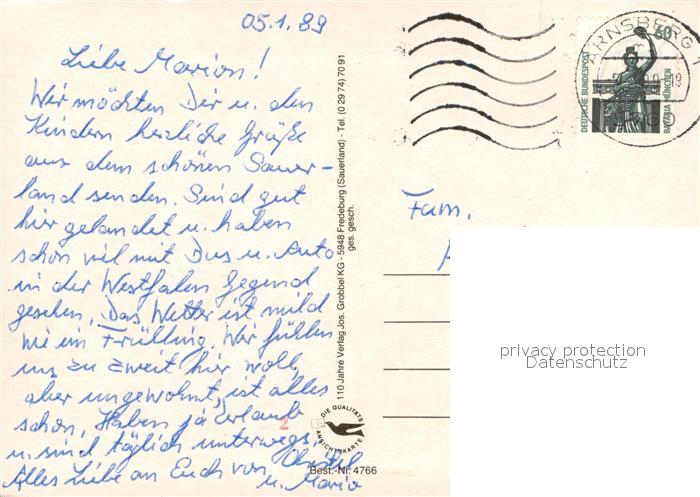 05.1.89
Liebe Marion!
Wir möchten Dir u. den
Kindern herzliche Grüße
aus dem schönen Sauer-
land senden. Sind gut
hier gelandet u. haben
schon viel mit Bus u. Auto
in der Westfalen Gegend
gesehen. Das Wetter ist mild
wie im Frühling. Wir fühlen
uns zu zweit hier wohl,
aber ungewohnt, ist alles
schön, Haben ja Urlaub
u. sind täglich unterwegs.
Alles Liebe an Euch von Christel
u. Mario
110 Jahre Verlag Jos. Grobbel KG - 5948 Fredeburg (Sauerland) - Tel. (0 29 74) 70 91
ges. gesch.
DIE QUALITÄTS
ANSICHTSKARTE
Best.-Nr. 4766
ARNSBERG 1
60
DEUTSCHE BUNDESPOST
BAVARIA MÜNCHEN
Fam.
privacy protection
Datenschutz